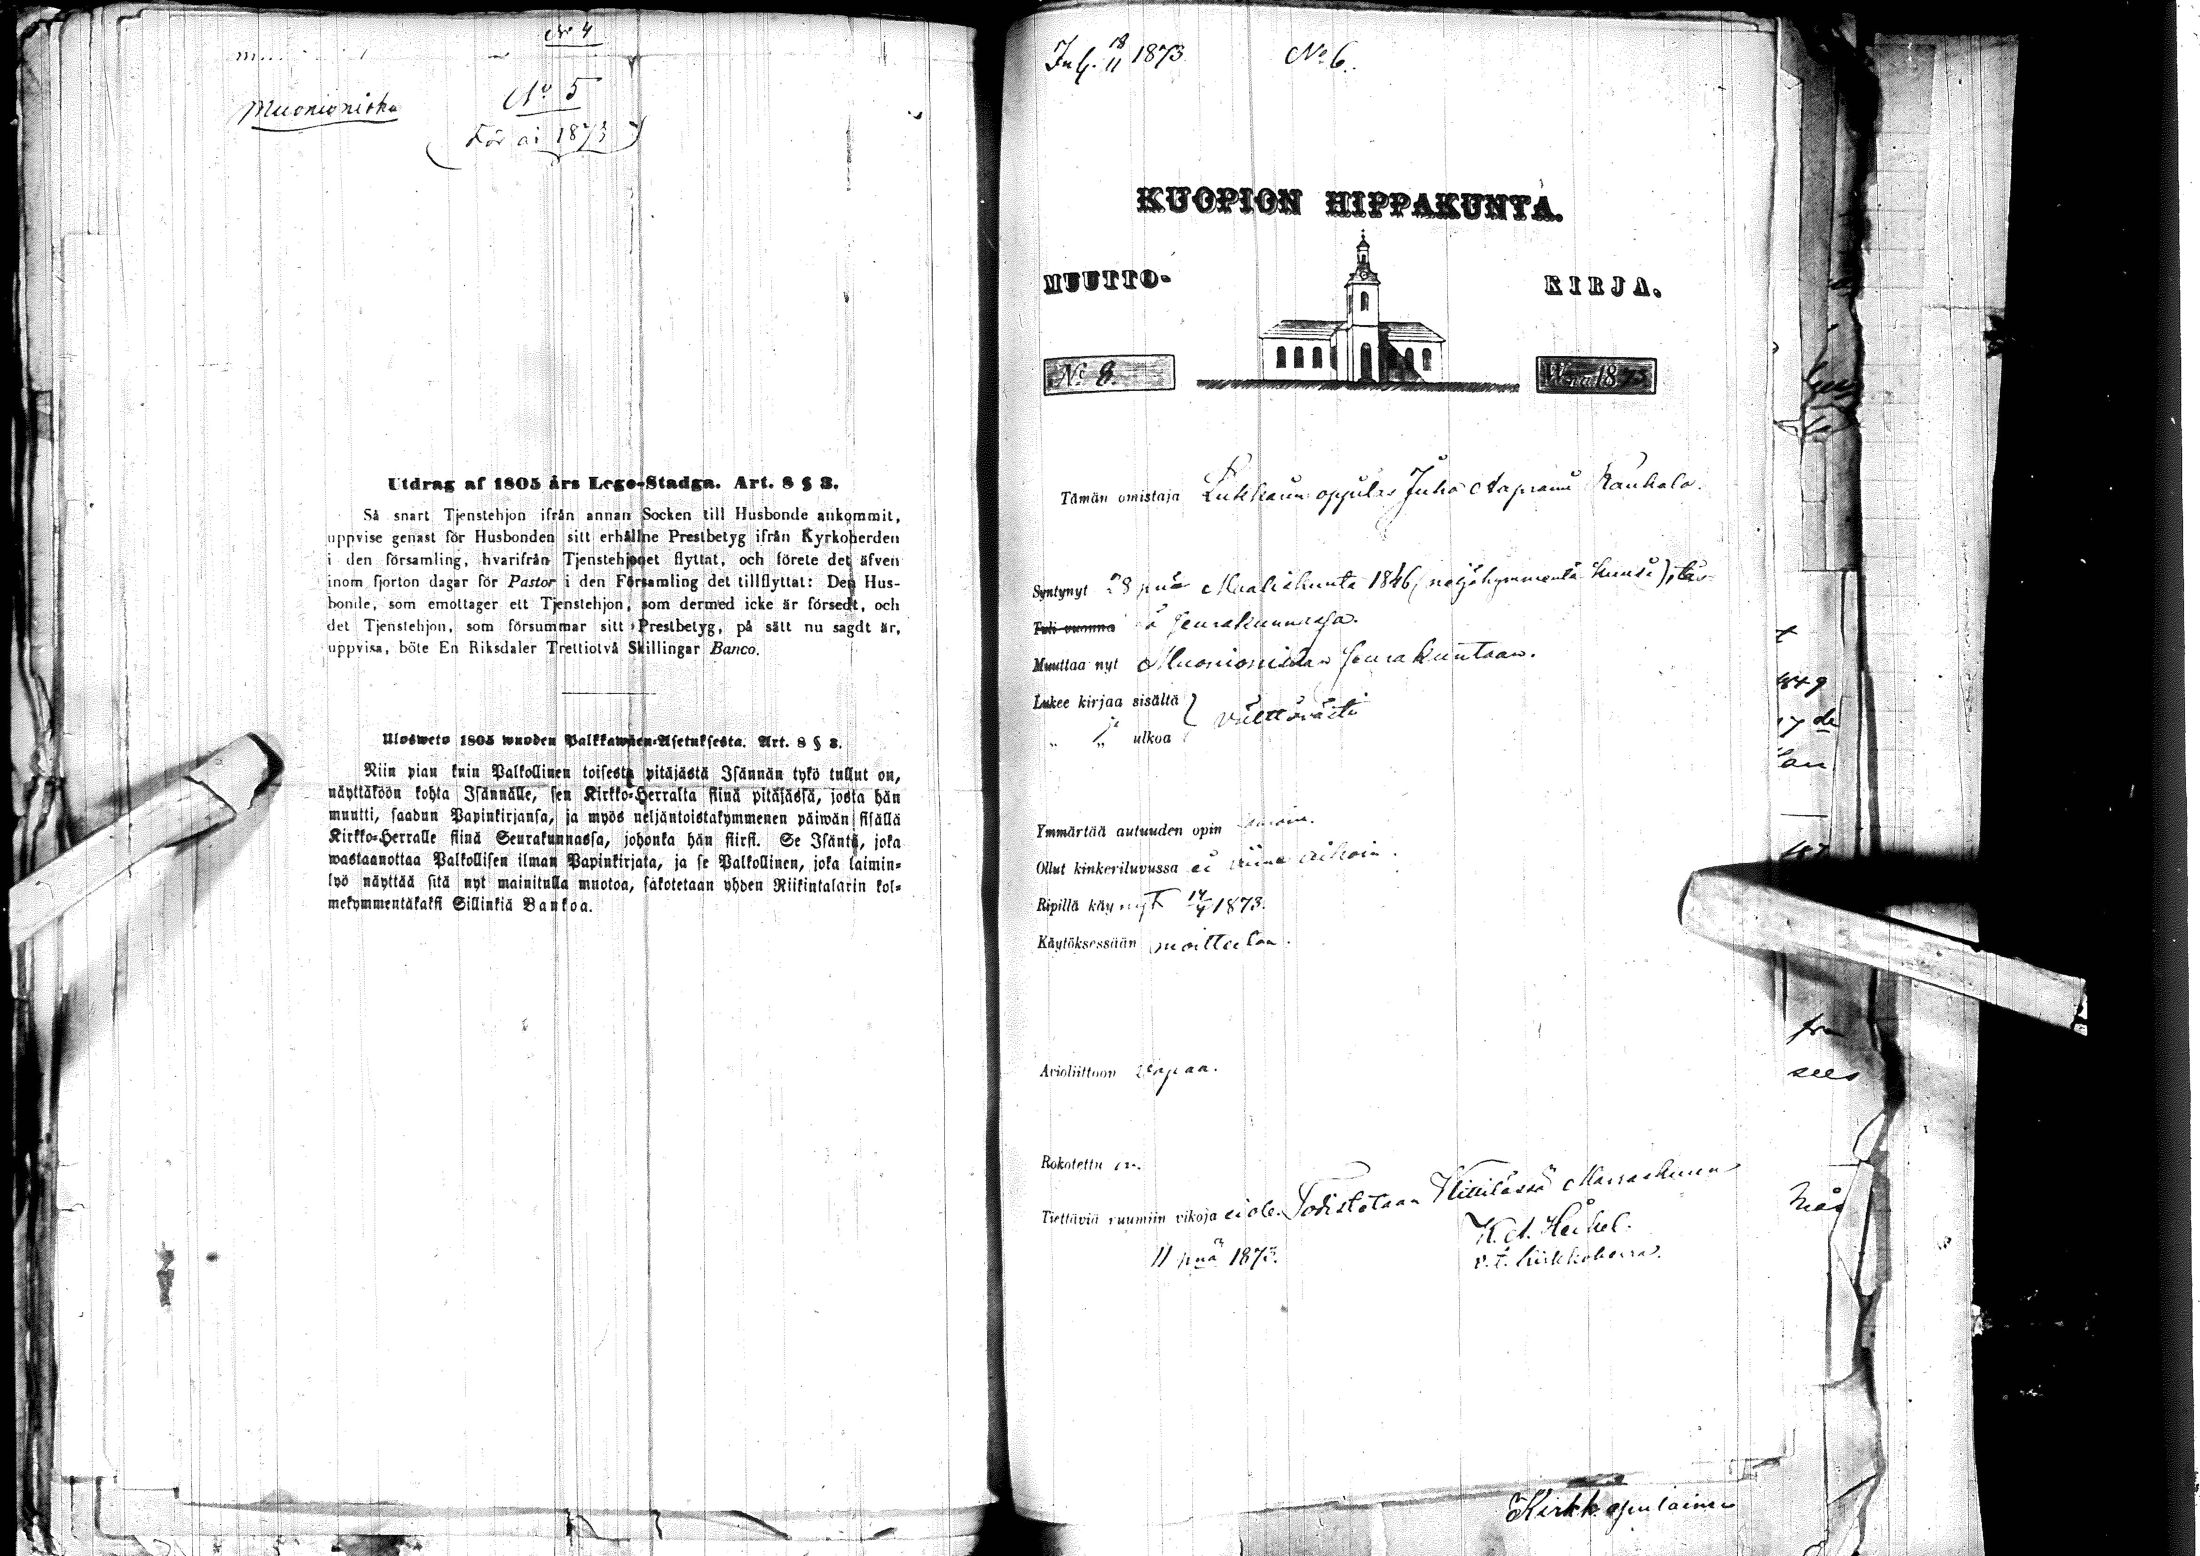 No 4
Muonioniska
No 5
För åi 1873
Utdrag af 1805 års Lego-Stadga. Art. 8 § 3.
Så snart Tjenstehjon ifrån annan Socken till Husbonde ankommit,
uppvise genast för Husbonden sitt erhållne Prestbetyg ifrån Kyrkoherden
i den församling, hvarifrån Tjenstehjonet flyttat, och förete det äfven
inom fjorton dagar för Pastor i den Församling det tillflyttat: Den Hus-
bonde, som emottager ett Tjenstehjon, som dermed icke är försedt, och
det Tjenstehjon, som försummar sitt Prestbetyg, på sätt nu sagdt är,
uppvisa, böte En Riksdaler Trettiotvå Skillingar Banco.
Ulosweto 1805 wuoden Palkkawäen-Asetuksesta. Art. 8 § 3.
Niin pian kuin Palkollinen toisesta pitäjästä Isännän tykö tullut on,
näyttäköön kohta Isännälle, sen Kirkko-Herralta siinä pitäjässä, josta hän
muutti, saadun Papinkirjansa, ja myös neljäntoistakymmenen päiwän sisällä
Kirkko-Herralle siinä Seurakunnassa, johonka hän siirsi. Se Isäntä, joka
wastaanottaa Palkollisen ilman Papinkirjata, ja se Palkollinen, joka laimin-
lyö näyttää sitä nyt mainitulla muotoa, sakotetaan yhden Riikintalarin kol-
mekymmentäkaksi Sillinkiä Bankoa.
Inl. 18/11 1873 No 6.
KUOPION HIPPAKUNTA.
MUUTTO- KIRJA.
No 8. W:na 1873
Tämän omistaja Juho Aaprami Kaukala.
Syntynyt 28 pnä Maaliskuuta 1846 (neljäkymmentä kuusi), täs-
Tuli vuonna sä seurakunnassa.
Muuttaa nyt Muonioniskan seurakuntaan.
Lukee kirjaa sisältä
„ ja „ ulkoa } välttävästi
Ymmärtää autuuden opin
Ollut kinkeriluvussa ei viime aikoin.
Ripillä käynyt 14/4 1873.
Käytöksessään moitteeton.
Avioliittoon vapaa.
Rokotettu on.
Tiettäviä ruumiin vikoja ei ole. Todistetaan Kittilässä Marraskuun
11 pnä 1873.
K. A. Heikel.
v. t. kirkkoherra.
Kirkk. apulainen